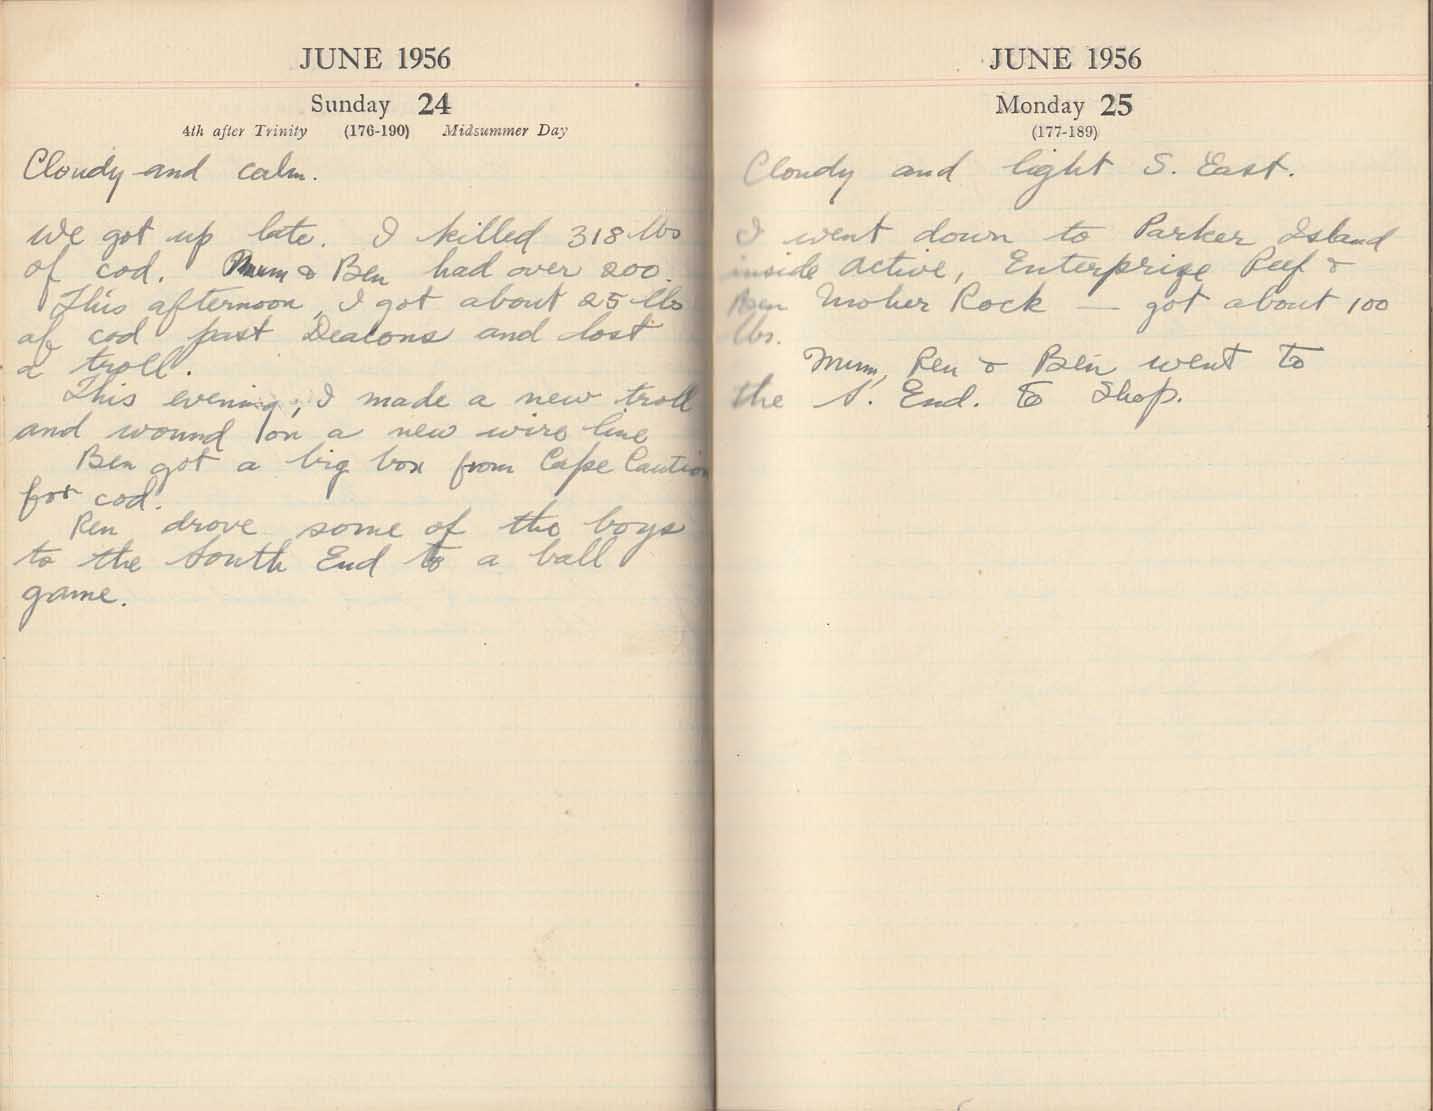 JUNE 1956
Sunday 24
4th after Trinity (176-190) Midsummer Day
Cloudy and calm.
We got up late. I killed 318 lbs
of cod. Mum & Ben had over 200.
This afternoon, I got about 25 lbs
of cod past Deacons and lost
a troll.
This evening, I made a new troll
and wound on a new wire line
Ben got a big box from Cape Caution
for cod.
Ren drove some of the boys
to the South End to a ball
game.
JUNE 1956
Monday 25
(177-189)
Cloudy and light S. East.
I went down to Parker Island
inside Active, Enterprize Reef &
Ben Moher Rock — got about 100
lbs.
Mum, Ren & Ben went to
the S. End. to Shop.